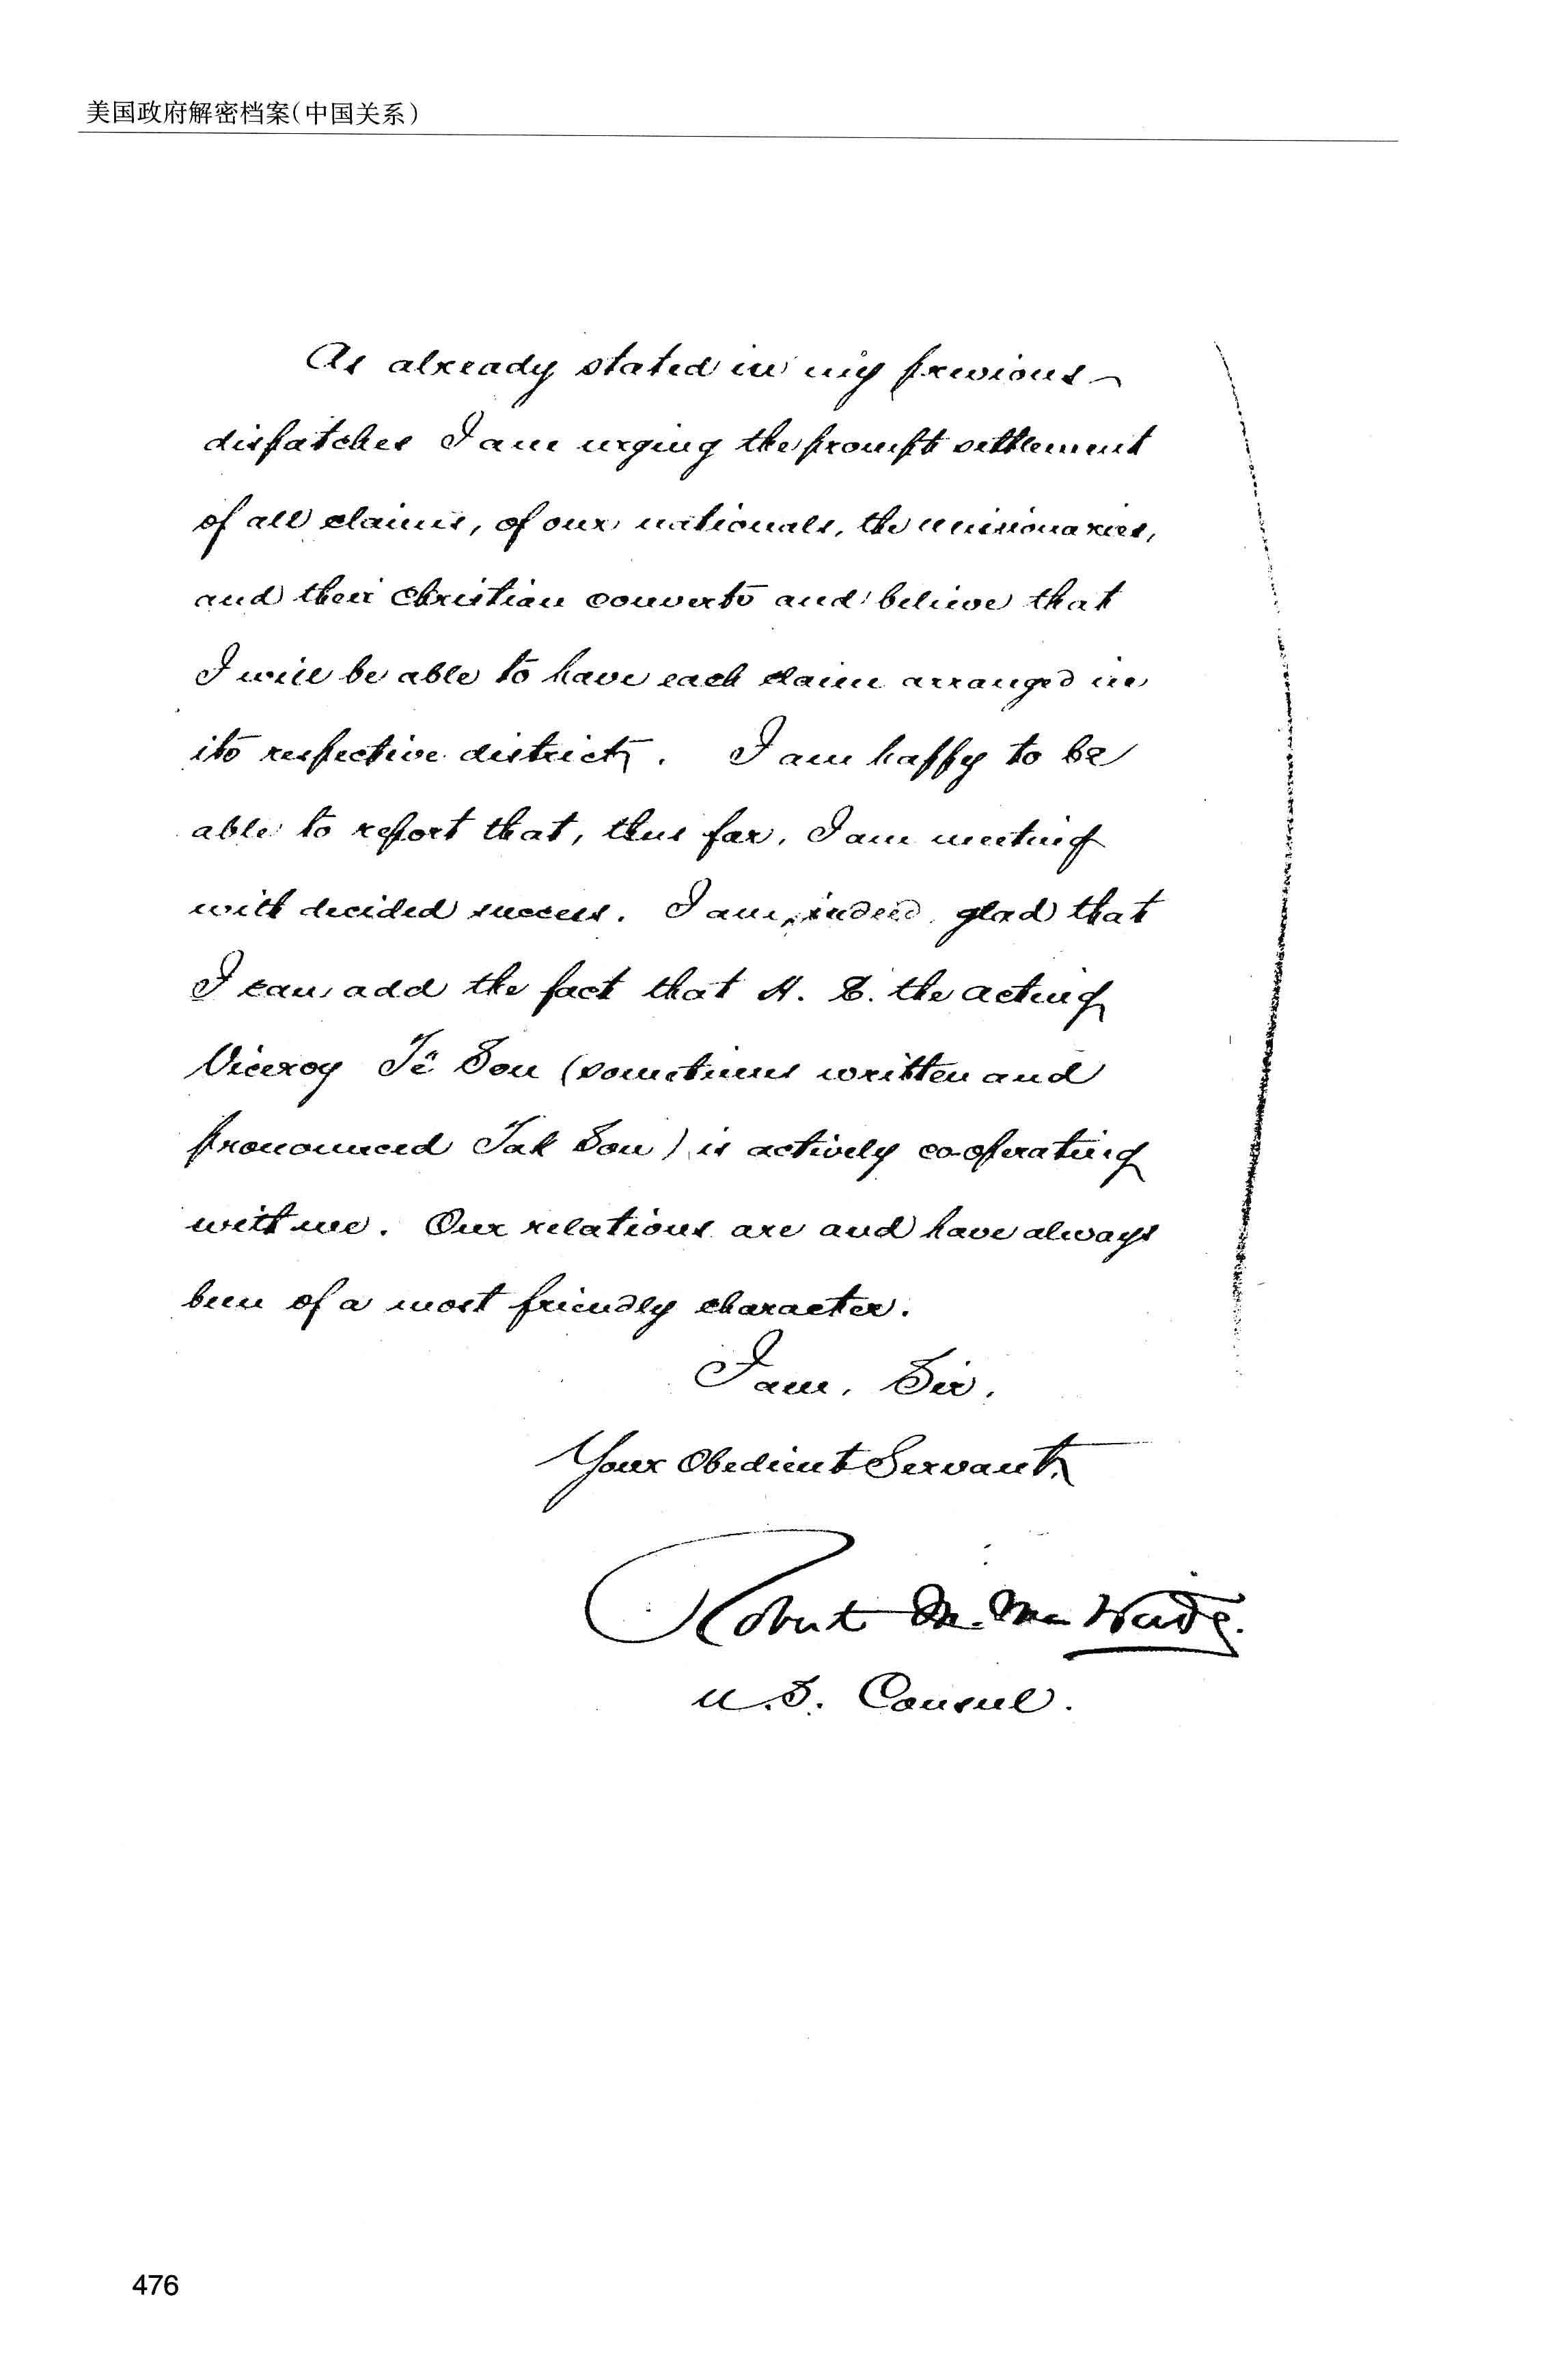 美国政府解密档案(中国关系)
As already stated in my previous
dispatches I am urging the prompt settlement
of all claims, of our nationals, the missionaries,
and their Christian converts and believe that
I will be able to have each claim arranged in
its respective district. I am happy to be
able to report that, thus far, I am meeting
with decided success. I am, indeed, glad that
I can add the fact that H. E. the Acting
Viceroy Tê Sou (sometimes written and
pronounced Tak Sou) is actively co-operating
with me. Our relations are and have always
been of a most friendly character.
I am, Sir,
Your Obedient Servant,
Robert M. McWade.
U.S. Consul.
476